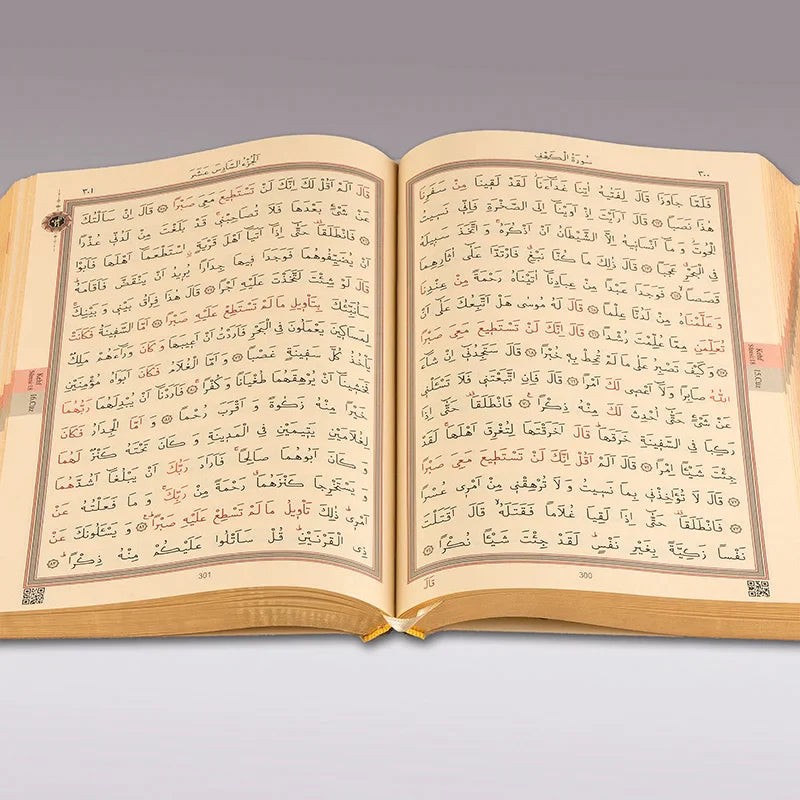 سُورَةُ الْكَهْفِ
٣٠٠
فَلَمَّا جَاوَزَا قَالَ لِفَتٰيهُ اٰتِنَا غَدَٓاءَنَاۘ لَقَدْ لَقٖينَا مِنْ سَفَرِنَا
هٰذَا نَصَبًا ۝ قَالَ اَرَاَيْتَ اِذْ اَوَيْنَٓا اِلَى الصَّخْرَةِ فَاِنّٖي نَسٖيتُ
الْحُوتَۘ وَمَٓا اَنْسَانٖيهُ اِلَّا الشَّيْطَانُ اَنْ اَذْكُرَهُۚ وَاتَّخَذَ سَبٖيلَهُ
فِي الْبَحْرِ عَجَبًا ۝ قَالَ ذٰلِكَ مَا كُنَّا نَبْغِۘ فَارْتَدَّا عَلٰٓى اٰثَارِهِمَا
قَصَصًاۙ ۝ فَوَجَدَا عَبْدًا مِنْ عِبَادِنَٓا اٰتَيْنَاهُ رَحْمَةً مِنْ عِنْدِنَا
وَعَلَّمْنَاهُ مِنْ لَدُنَّا عِلْمًا ۝ قَالَ لَهُ مُوسٰى هَلْ اَتَّبِعُكَ عَلٰٓى اَنْ
تُعَلِّمَنِ مِمَّا عُلِّمْتَ رُشْدًا ۝ قَالَ اِنَّكَ لَنْ تَسْتَطٖيعَ مَعِيَ صَبْرًا
۝ وَكَيْفَ تَصْبِرُ عَلٰى مَا لَمْ تُحِطْ بِهٖ خُبْرًا ۝ قَالَ سَتَجِدُنٖٓي اِنْ شَٓاءَ
اللّٰهُ صَابِرًا وَلَٓا اَعْصٖي لَكَ اَمْرًا ۝ قَالَ فَاِنِ اتَّبَعْتَنٖي فَلَا تَسْـَٔلْنٖي
عَنْ شَيْءٍ حَتّٰٓى اُحْدِثَ لَكَ مِنْهُ ذِكْرًا ۝ فَانْطَلَقَا۠ حَتّٰٓى اِذَا
رَكِبَا فِي السَّفٖينَةِ خَرَقَهَاۜ قَالَ اَخَرَقْتَهَا لِتُغْرِقَ اَهْلَهَاۚ لَقَدْ
جِئْتَ شَيْـًٔا اِمْرًا ۝ قَالَ اَلَمْ اَقُلْ اِنَّكَ لَنْ تَسْتَطٖيعَ مَعِيَ صَبْرًا
۝ قَالَ لَا تُؤَاخِذْنٖي بِمَا نَسٖيتُ وَلَا تُرْهِقْنٖي مِنْ اَمْرٖي عُسْرًا
۝ فَانْطَلَقَا۠ حَتّٰٓى اِذَا لَقِيَا غُلَامًا فَقَتَلَهُۙ قَالَ اَقَتَلْتَ
نَفْسًا زَكِيَّةً بِغَيْرِ نَفْسٍۜ لَقَدْ جِئْتَ شَيْـًٔا نُكْرًا ۝
300
قَالَ
Kehf Sûresi 18
15.Cüz
اَلْجُزْءُ السَّادِسَ عَشَرَ
٣٠١
قَالَ اَلَمْ اَقُلْ لَكَ اِنَّكَ لَنْ تَسْتَطٖيعَ مَعِيَ صَبْرًا ۝ قَالَ اِنْ سَاَلْتُكَ
عَنْ شَيْءٍ بَعْدَهَا فَلَا تُصَاحِبْنٖيۚ قَدْ بَلَغْتَ مِنْ لَدُنّٖي عُذْرًا
۝ فَانْطَلَقَا۠ حَتّٰٓى اِذَٓا اَتَيَٓا اَهْلَ قَرْيَةٍۨ اسْتَطْعَمَٓا اَهْلَهَا فَاَبَوْا
اَنْ يُضَيِّفُوهُمَا فَوَجَدَا فٖيهَا جِدَارًا يُرٖيدُ اَنْ يَنْقَضَّ فَاَقَامَهُۜ
قَالَ لَوْ شِئْتَ لَتَّخَذْتَ عَلَيْهِ اَجْرًا ۝ قَالَ هٰذَا فِرَاقُ بَيْنٖي وَبَيْنِكَۚ
سَاُنَبِّئُكَ بِتَأْوٖيلِ مَا لَمْ تَسْتَطِعْ عَلَيْهِ صَبْرًا ۝ اَمَّا السَّفٖينَةُ فَكَانَتْ
لِمَسَاكٖينَ يَعْمَلُونَ فِي الْبَحْرِ فَاَرَدْتُ اَنْ اَعٖيبَهَا وَكَانَ وَرَٓاءَهُمْ مَلِكٌ
يَأْخُذُ كُلَّ سَفٖينَةٍ غَصْبًا ۝ وَاَمَّا الْغُلَامُ فَكَانَ اَبَوَاهُ مُؤْمِنَيْنِ
فَخَشٖينَٓا اَنْ يُرْهِقَهُمَا طُغْيَانًا وَكُفْرًاۚ ۝ فَاَرَدْنَٓا اَنْ يُبْدِلَهُمَا رَبُّهُمَا
خَيْرًا مِنْهُ زَكٰوةً وَاَقْرَبَ رُحْمًا ۝ وَاَمَّا الْجِدَارُ فَكَانَ
لِغُلَامَيْنِ يَتٖيمَيْنِ فِي الْمَدٖينَةِ وَكَانَ تَحْتَهُ كَنْزٌ لَهُمَا
وَكَانَ اَبُوهُمَا صَالِحًاۚ فَاَرَادَ رَبُّكَ اَنْ يَبْلُغَٓا اَشُدَّهُمَا
وَيَسْتَخْرِجَا كَنْزَهُمَاۗ رَحْمَةً مِنْ رَبِّكَۚ وَمَا فَعَلْتُهُ عَنْ
اَمْرٖيۜ ذٰلِكَ تَأْوٖيلُ مَا لَمْ تَسْطِعْ عَلَيْهِ صَبْرًاۜ ۝ وَيَسْـَٔلُونَكَ عَنْ
ذِي الْقَرْنَيْنِۜ قُلْ سَاَتْلُوا عَلَيْكُمْ مِنْهُ ذِكْرًاۜ ۝
301
Kehf Sûresi 18
16.Cüz